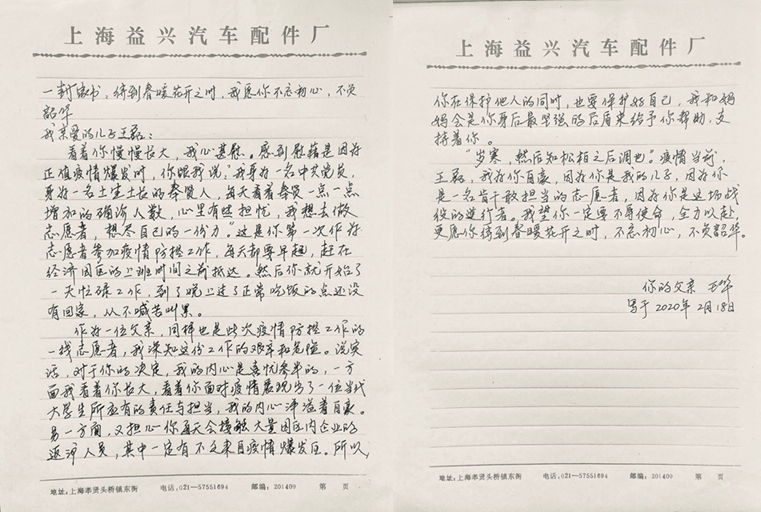 上海益兴汽车配件厂
一封家书，待到春暖花开之时，我愿你不忘初心，不负
韶华
我亲爱的儿子王磊：
看着你慢慢长大，我心甚慰。感到慰藉是因为
正值疫情爆发时，你跟我说："我身为一名中共党员，
身为一名土生土长的奉贤人，每天看着奉贤一点一点
增加的确诊人数，心里有些担忧，我想去做
志愿者，想尽自己的一份力"这是你第一次作为
志愿者参加疫情防控工作，每天都要早起，赶在
经济园区的上班时间之前抵达。然后你就开始了
一天忙碌工作，到了晚上过了正常吃饭的点还没
有回家，从不喊苦叫累。
作为一位父亲，同样也是此次疫情防控工作的
一线志愿者，我深知这份工作的艰辛和危险。说实
话，对于你的决定，我的内心是喜忧参半的，一方
面我看着你长大，看着你面对疫情表现出了一位当代
大学生所应有的责任与担当，我的内心洋溢着自豪。
另一方面，又担心你每天会接触大量园区内企业的
返沪人员，其中一定有不乏来自疫情爆发区。所以，
地址：上海奉贤头桥镇东街 电话：021—57551694 邮编：201409 第 页
上海益兴汽车配件厂
你在保护他人的同时，也要保护好自己，我和妈
妈会是你身后最坚强的后盾来给予你帮助，支
持着你。
"岁寒，然后知松柏之后凋也"疫情当前，
王磊，我为你自豪，因为你是我的儿子，因为你
是一名肯干敢担当的志愿者，因为你是这场战
役的逆行者。我望你一定要不辱使命，全力以赴，
更愿你待到春暖花开之时，不忘初心，不负韶华。
你的父亲 王华
写于2020年2月18日
地址：上海奉贤头桥镇东街 电话：021—57551694 邮编：201409 第 页